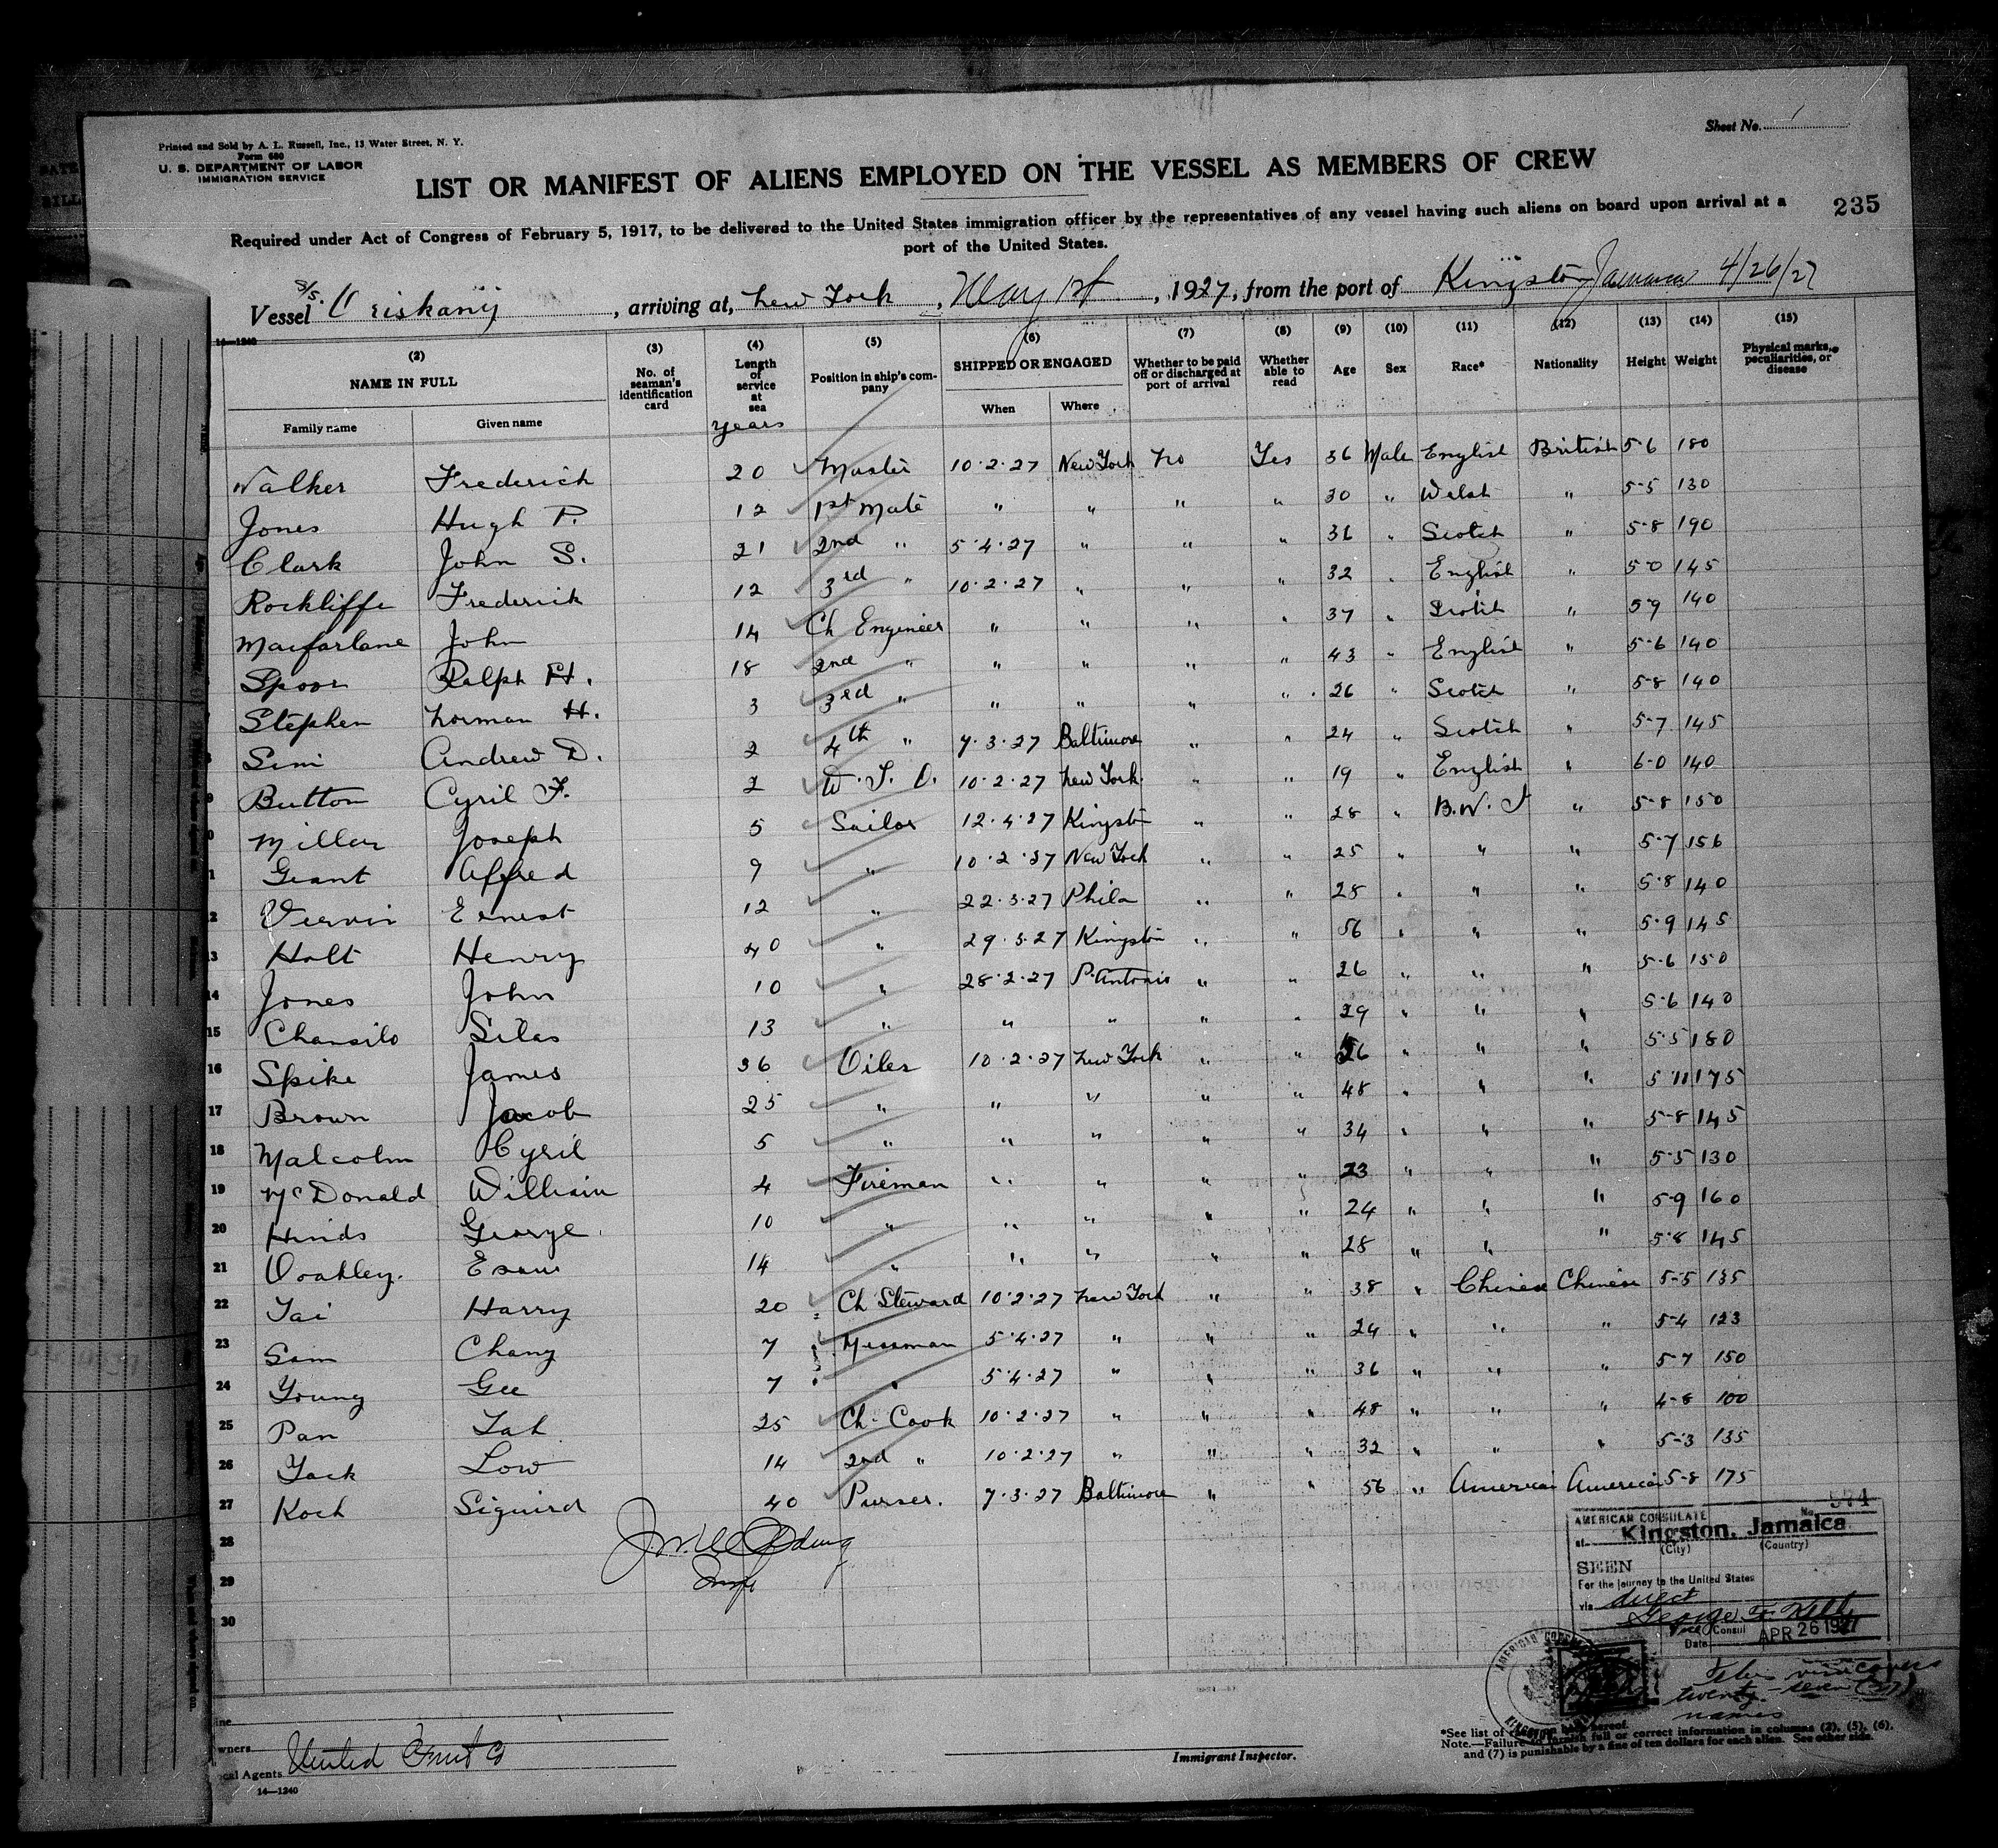 Sheet No. 1
Printed and Sold by A. L. Russell, Inc., 13 Water Street, N. Y.
Form 680
U. S. DEPARTMENT OF LABOR
IMMIGRATION SERVICE
LIST OR MANIFEST OF ALIENS EMPLOYED ON THE VESSEL AS MEMBERS OF CREW
235
Required under Act of Congress of February 5, 1917, to be delivered to the United States immigration officer by the representatives of any vessel having such aliens on board upon arrival at a
port of the United States.
Vessel S/S. Oriskany, arriving at, New York, May 1st, 1927, from the port of Kingston Jamaica 4/26/27
14—1240
(2) (3) (4) (5) (6) (7) (8) (9) (10) (11) (12) (13) (14) (15)
NAME IN FULL No. of seaman's identification card Length of service at sea Position in ship's company SHIPPED OR ENGAGED Whether to be paid off or discharged at port of arrival Whether able to read Age Sex Race* Nationality Height Weight Physical marks, peculiarities, or disease
Family name Given name years When Where
Walker Frederick 20 Master 10·2·27 New York No Yes 36 Male English British 5-6 180
Jones Hugh P. 12 1st Mate " " " " 30 " Welsh " 5-5 130
Clark John S. 21 2nd " 5·4·27 " " " 36 " Scotch " 5-8 190
Rockliffe Frederick 12 3rd " 10·2·27 " " " 32 " English " 5-0 145
Macfarlane John 14 Ch Engineer " " " " 37 " Scotch " 5-9 140
Spoor Ralph H. 18 2nd " " " " " 43 " English " 5-6 140
Stephen Norman H. 3 3rd " " " " " 26 " Scotch " 5-8 140
Sim Andrew D. 2 4th " 7·3·27 Baltimore " " 24 " Scotch " 5-7 145
9 Button Cyril F. 2 W. T. O. 10·2·27 New York " " 19 " English " 6-0 140
Millar Joseph 5 Sailor 12·4·27 Kingston " " 28 " B.W.I " 5-8 150
Grant Alfred 9 " 10·2·27 New York " " 25 " " " 5-7 156
2 Ernest 12 " 22·3·27 Phila " " 28 " " " 5-8 140
3 Holt Henry 40 " 29·3·27 Kingston " " 56 " " " 5-9 145
14 Jones John 10 " 28·2·27 P. Antonio " " 26 " " " 5-6 150
15 Silas 13 " " " " " 29 " " " 5-6 140
16 Spike James 36 Oiler 10·2·27 New York " " 56 " " " 5-5 180
17 Brown Jacob 25 " " " " " 48 " " " 5-11 175
18 Malcolm Cyril 5 " " " " " 34 " " " 5-8 145
19 McDonald William 4 Fireman " " " " 23 " " " 5-5 130
20 Hinds George 10 " " " " " 24 " " " 5-9 160
21 Ooahley. 14 " " " " " 28 " " " 5-8 145
22 Tai Harry 20 Ch Steward 10·2·27 New York " " 38 " Chinese Chinese 5-5 135
23 Sam Chang 7 Messman 5·4·27 " " " 24 " " " 5-4 123
24 Young Gee 7 " 5·4·27 " " " 36 " " " 5-7 150
25 Pan Tah 25 Ch. Cook 10·2·27 " " " 48 " " " 4-8 100
26 Yack Low 14 2nd " 10·2·27 " " " 32 " " " 5-3 135
27 Koch Siguird 40 Purser. 7·3·27 Baltimore " " 56 " American American 5-8 175
28
29
30
No. 574
AMERICAN CONSULATE
at Kingston, Jamaica
(City) (Country)
SEEN
For the journey to the United States
via direct
George F. Kelly
Vice Consul
Date APR 26 1927
twenty-seven (27)
names
wners
cal Agents United Fruit Co
14—1240
Immigrant Inspector.
*See list of races on back hereof.
Note.—Failure to furnish full or correct information in columns (2), (5), (6),
and (7) is punishable by a fine of ten dollars for each alien. See other side.